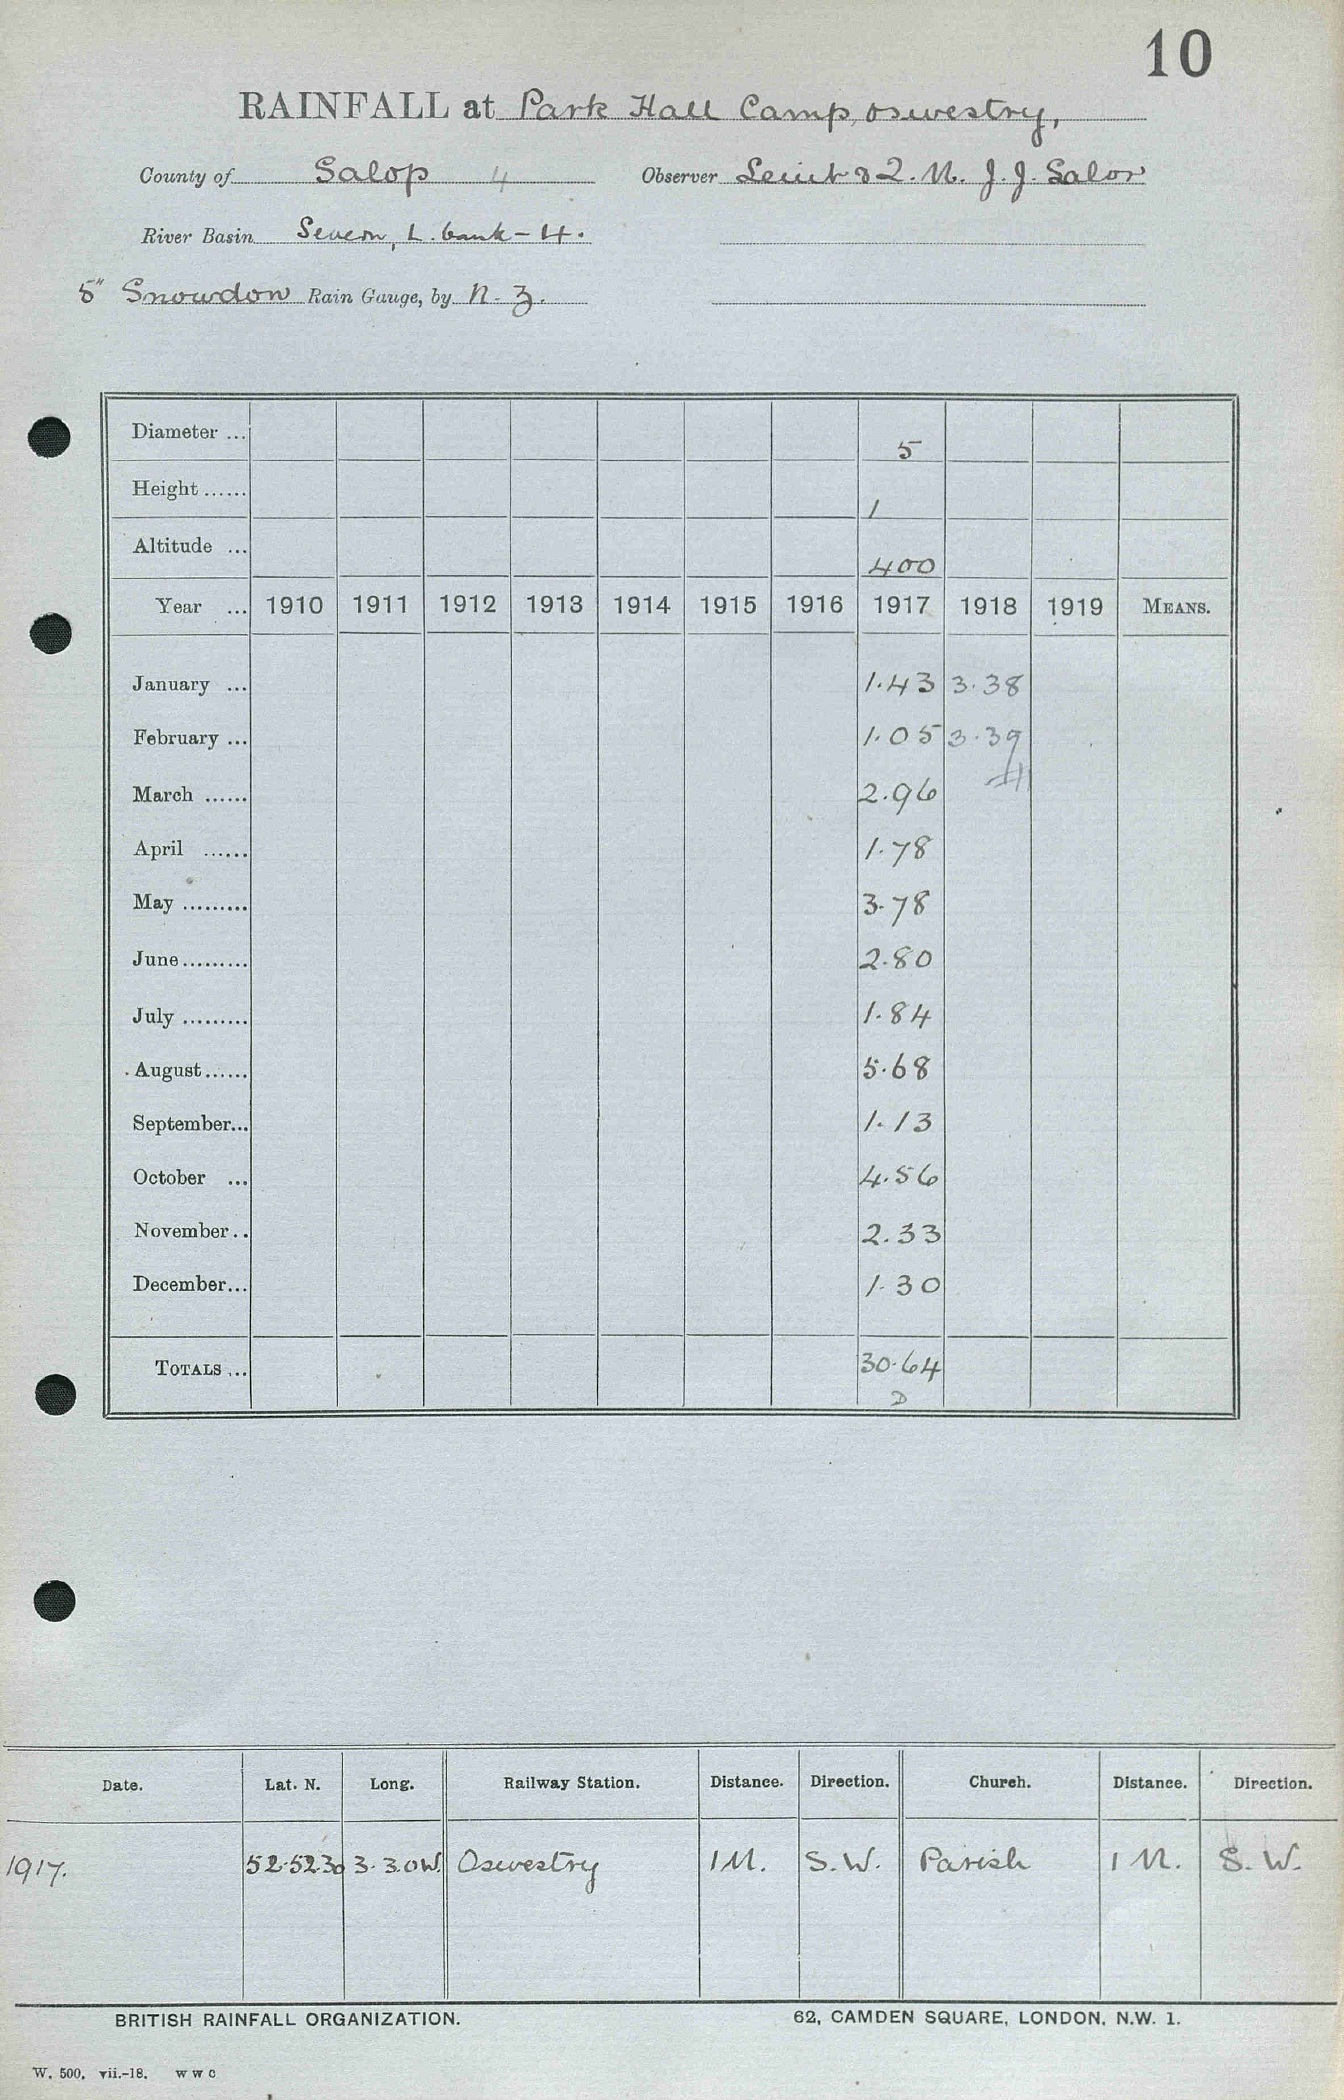 10
RAINFALL at Park Hall Camp, Oswestry,
County of Salop 4 Observer Leiut & Q. M. J. J. Salor
River Basin Severn, L. bank - 4.
5" Snowdon Rain Gauge, by N. Z.
Diameter ... 5
Height ...... 1
Altitude ... 400
Year ... 1910 1911 1912 1913 1914 1915 1916 1917 1918 1919 MEANS.
January ... 1.43 3.38
February ... 1.05 3.39
March ...... 2.96
April ...... 1.78
May ......... 3.78
June ......... 2.80
July ......... 1.84
August ...... 5.68
September... 1.13
October ... 4.56
November .. 2.33
December... 1.30
TOTALS ... 30.64
D
Date. Lat. N. Long. Railway Station. Distance. Direction. Church. Distance. Direction.
1917. 52.52.30 3.3.0W. Oswestry 1M. S.W. Parish 1 M. S.W.
BRITISH RAINFALL ORGANIZATION. 62, CAMDEN SQUARE, LONDON, N.W. 1.
W. 500. vii.-18. W W C